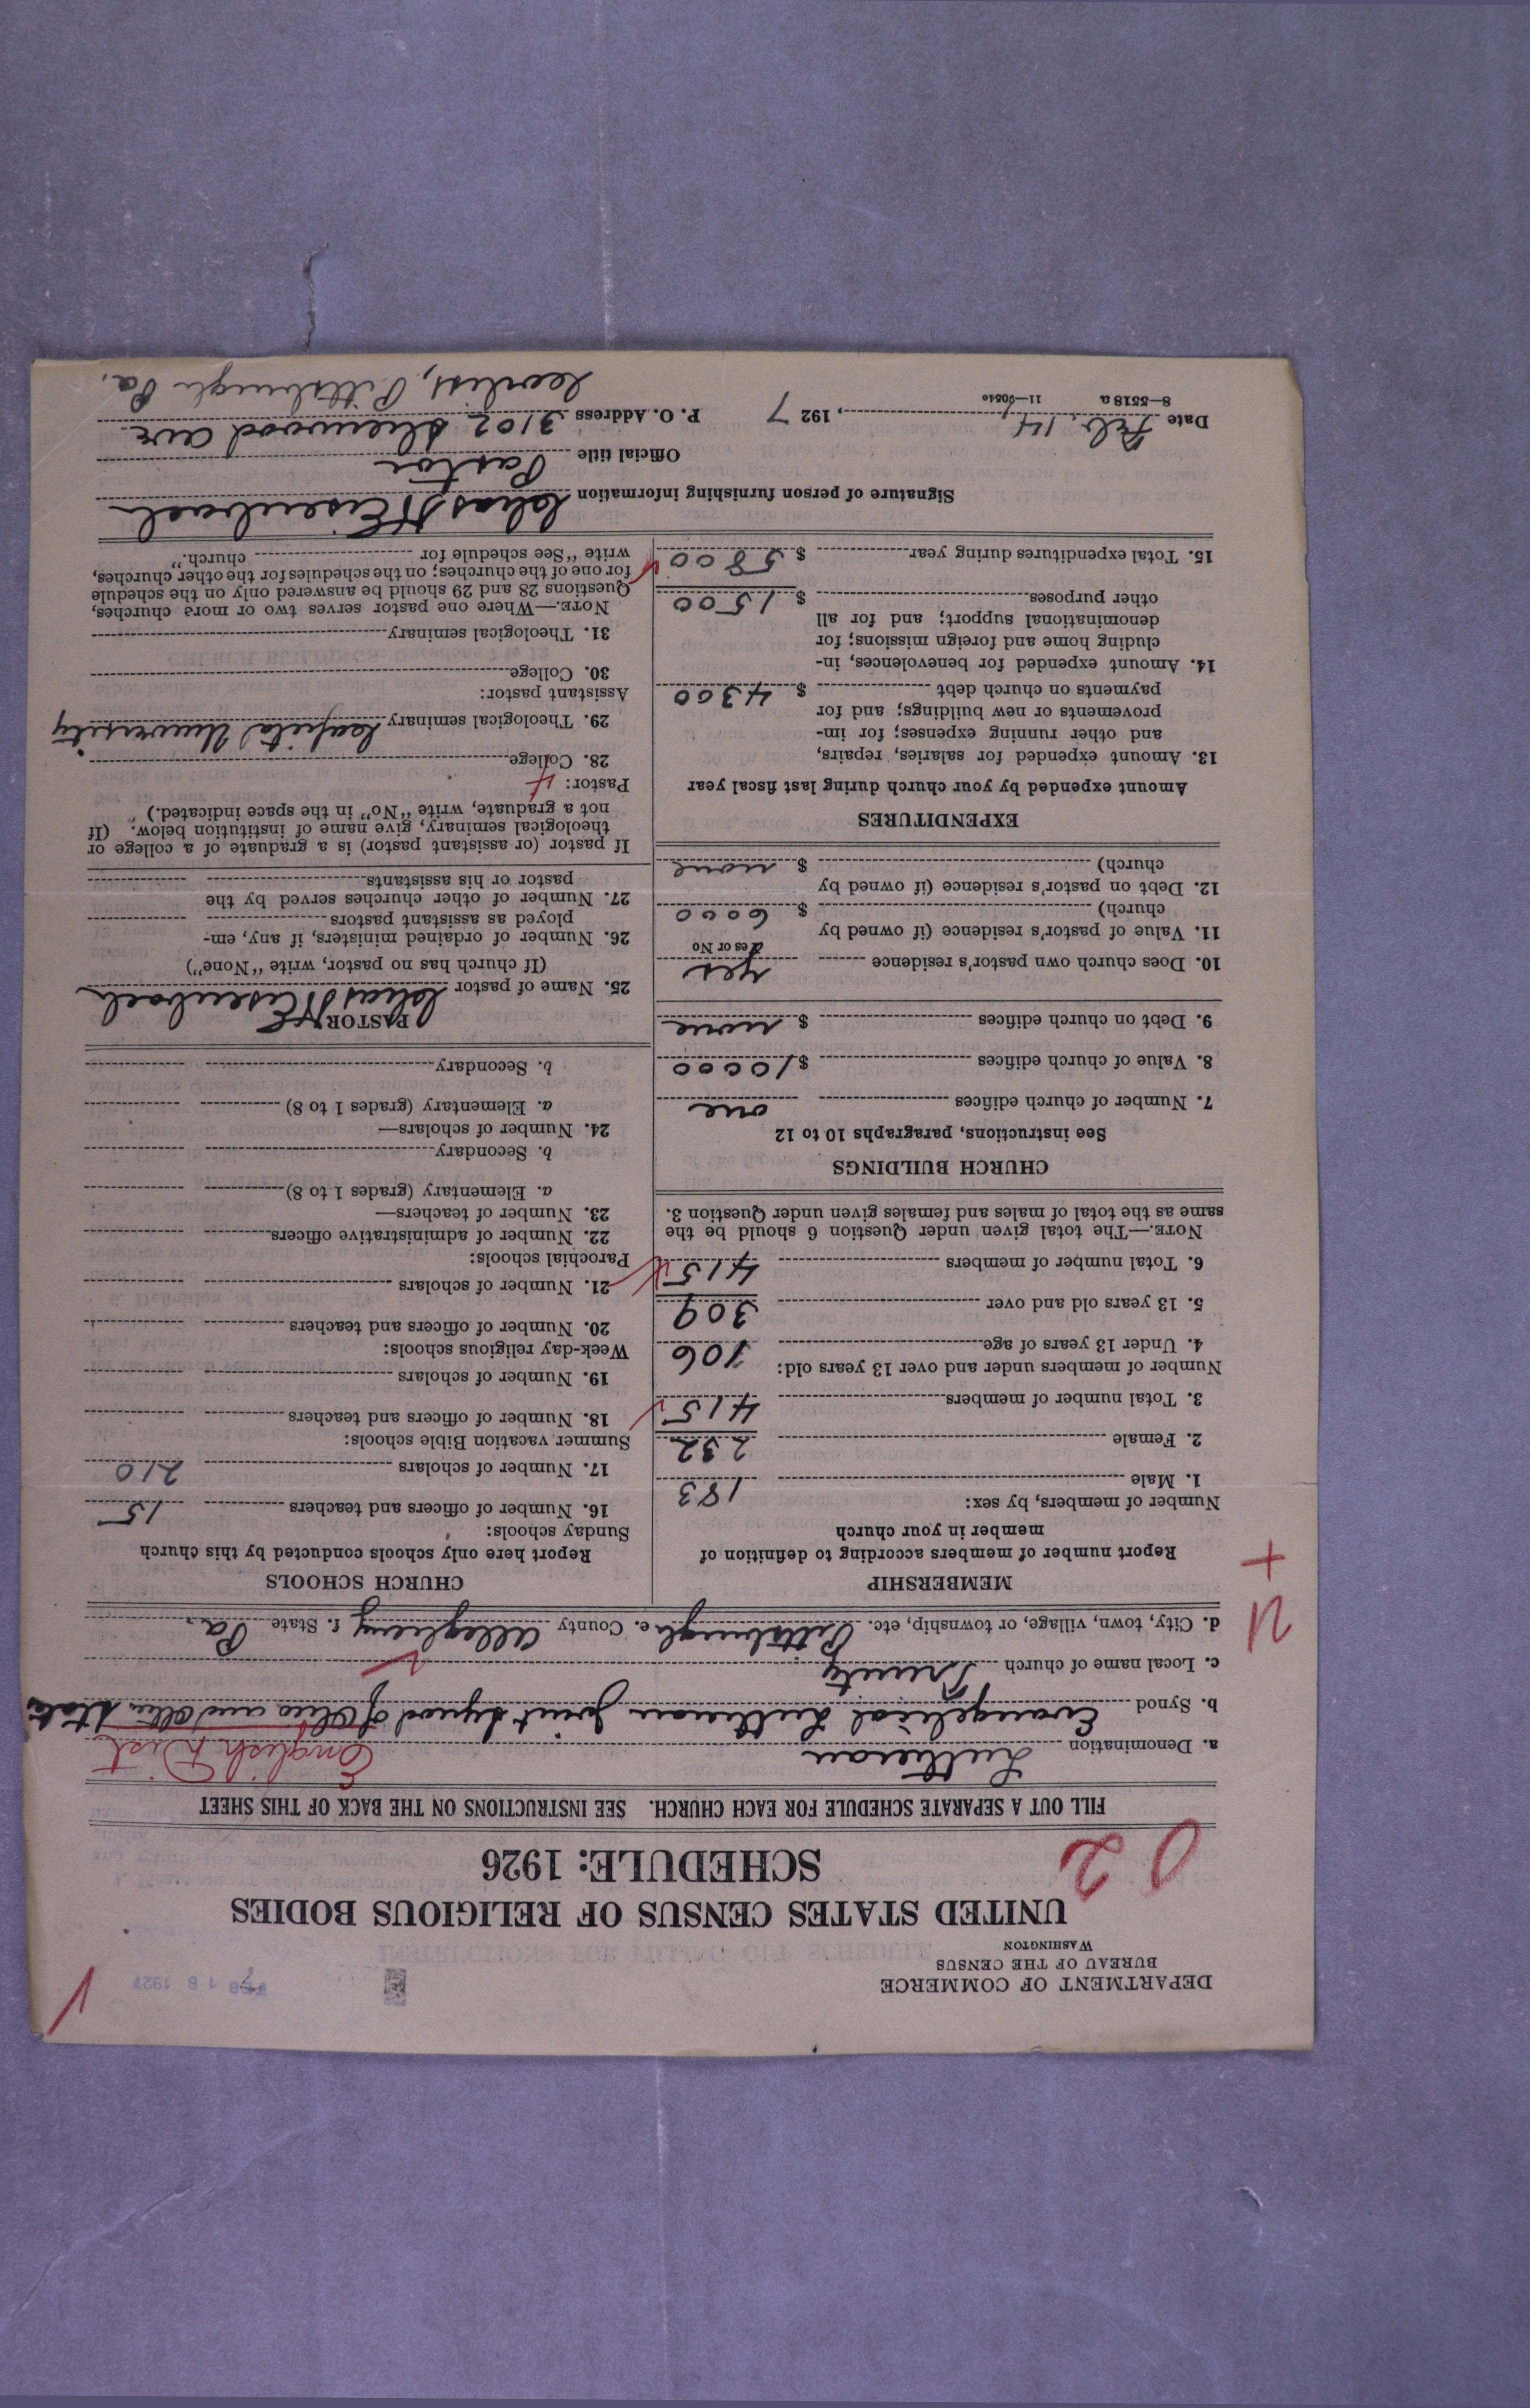 DEPARTMENT OF COMMERCE
BUREAU OF THE CENSUS
WASHINGTON
16 1927
UNITED STATES CENSUS OF RELIGIOUS BODIES
SCHEDULE: 1926
02
FILL OUT A SEPARATE SCHEDULE FOR EACH CHURCH. SEE INSTRUCTIONS ON THE BACK OF THIS SHEET
a. Denomination Lutheran English Dist
b. Synod Evangelical Lutheran Joint Synod of Ohio and Other States
c. Local name of church Trinity
d. City, town, village, or township, etc. Pittsburgh e. County Allegheny f. State Pa.
MEMBERSHIP
Report number of members according to definition of
member in your church
Number of members, by sex:
1. Male 183
2. Female 232
3. Total number of members 415
Number of members under and over 13 years old:
4. Under 13 years of age 106
5. 13 years old and over 309
6. Total number of members 415
NOTE.—The total given under Question 6 should be the
same as the total of males and females given under Question 3.
CHURCH BUILDINGS
See instructions, paragraphs 10 to 12
7. Number of church edifices one
8. Value of church edifices $ 10000
9. Debt on church edifices $ none
10. Does church own pastor's residence yes
Yes or No
11. Value of pastor's residence (if owned by
church) $ 6000
12. Debt on pastor's residence (if owned by
church) $ none
EXPENDITURES
Amount expended by your church during last fiscal year
13. Amount expended for salaries, repairs,
and other running expenses; for im-
provements or new buildings; and for
payments on church debt $ 4300
14. Amount expended for benevolences, in-
cluding home and foreign missions; for
denominational support; and for all
other purposes $ 1500
15. Total expenditures during year $ 5800
CHURCH SCHOOLS
Report here only schools conducted by this church
Sunday schools:
16. Number of officers and teachers 15
17. Number of scholars 210
Summer vacation Bible schools:
18. Number of officers and teachers
19. Number of scholars
Week-day religious schools:
20. Number of officers and teachers
21. Number of scholars
Parochial schools:
22. Number of administrative officers
23. Number of teachers—
a. Elementary (grades 1 to 8)
b. Secondary
24. Number of scholars—
a. Elementary (grades 1 to 8)
b. Secondary
PASTOR
25. Name of pastor Chas H Eisenbach
(If church has no pastor, write "None")
26. Number of ordained ministers, if any, em-
ployed as assistant pastors
27. Number of other churches served by the
pastor or his assistants
If pastor (or assistant pastor) is a graduate of a college or
theological seminary, give name of institution below. (If
not a graduate, write "No" in the space indicated.)
Pastor: 4
28. College
29. Theological seminary Capital University
Assistant pastor:
30. College
31. Theological seminary
NOTE.—Where one pastor serves two or more churches,
Questions 28 and 29 should be answered only on the schedule
for one of the churches; on the schedules for the other churches,
write "See schedule for church."
Signature of person furnishing information Chas H Eisenbach
Official title Pastor
Date Feb. 14, 1927 P. O. Address 3102 Sherwood ave
8—5518 a
Corliss, Pittsburgh Pa.